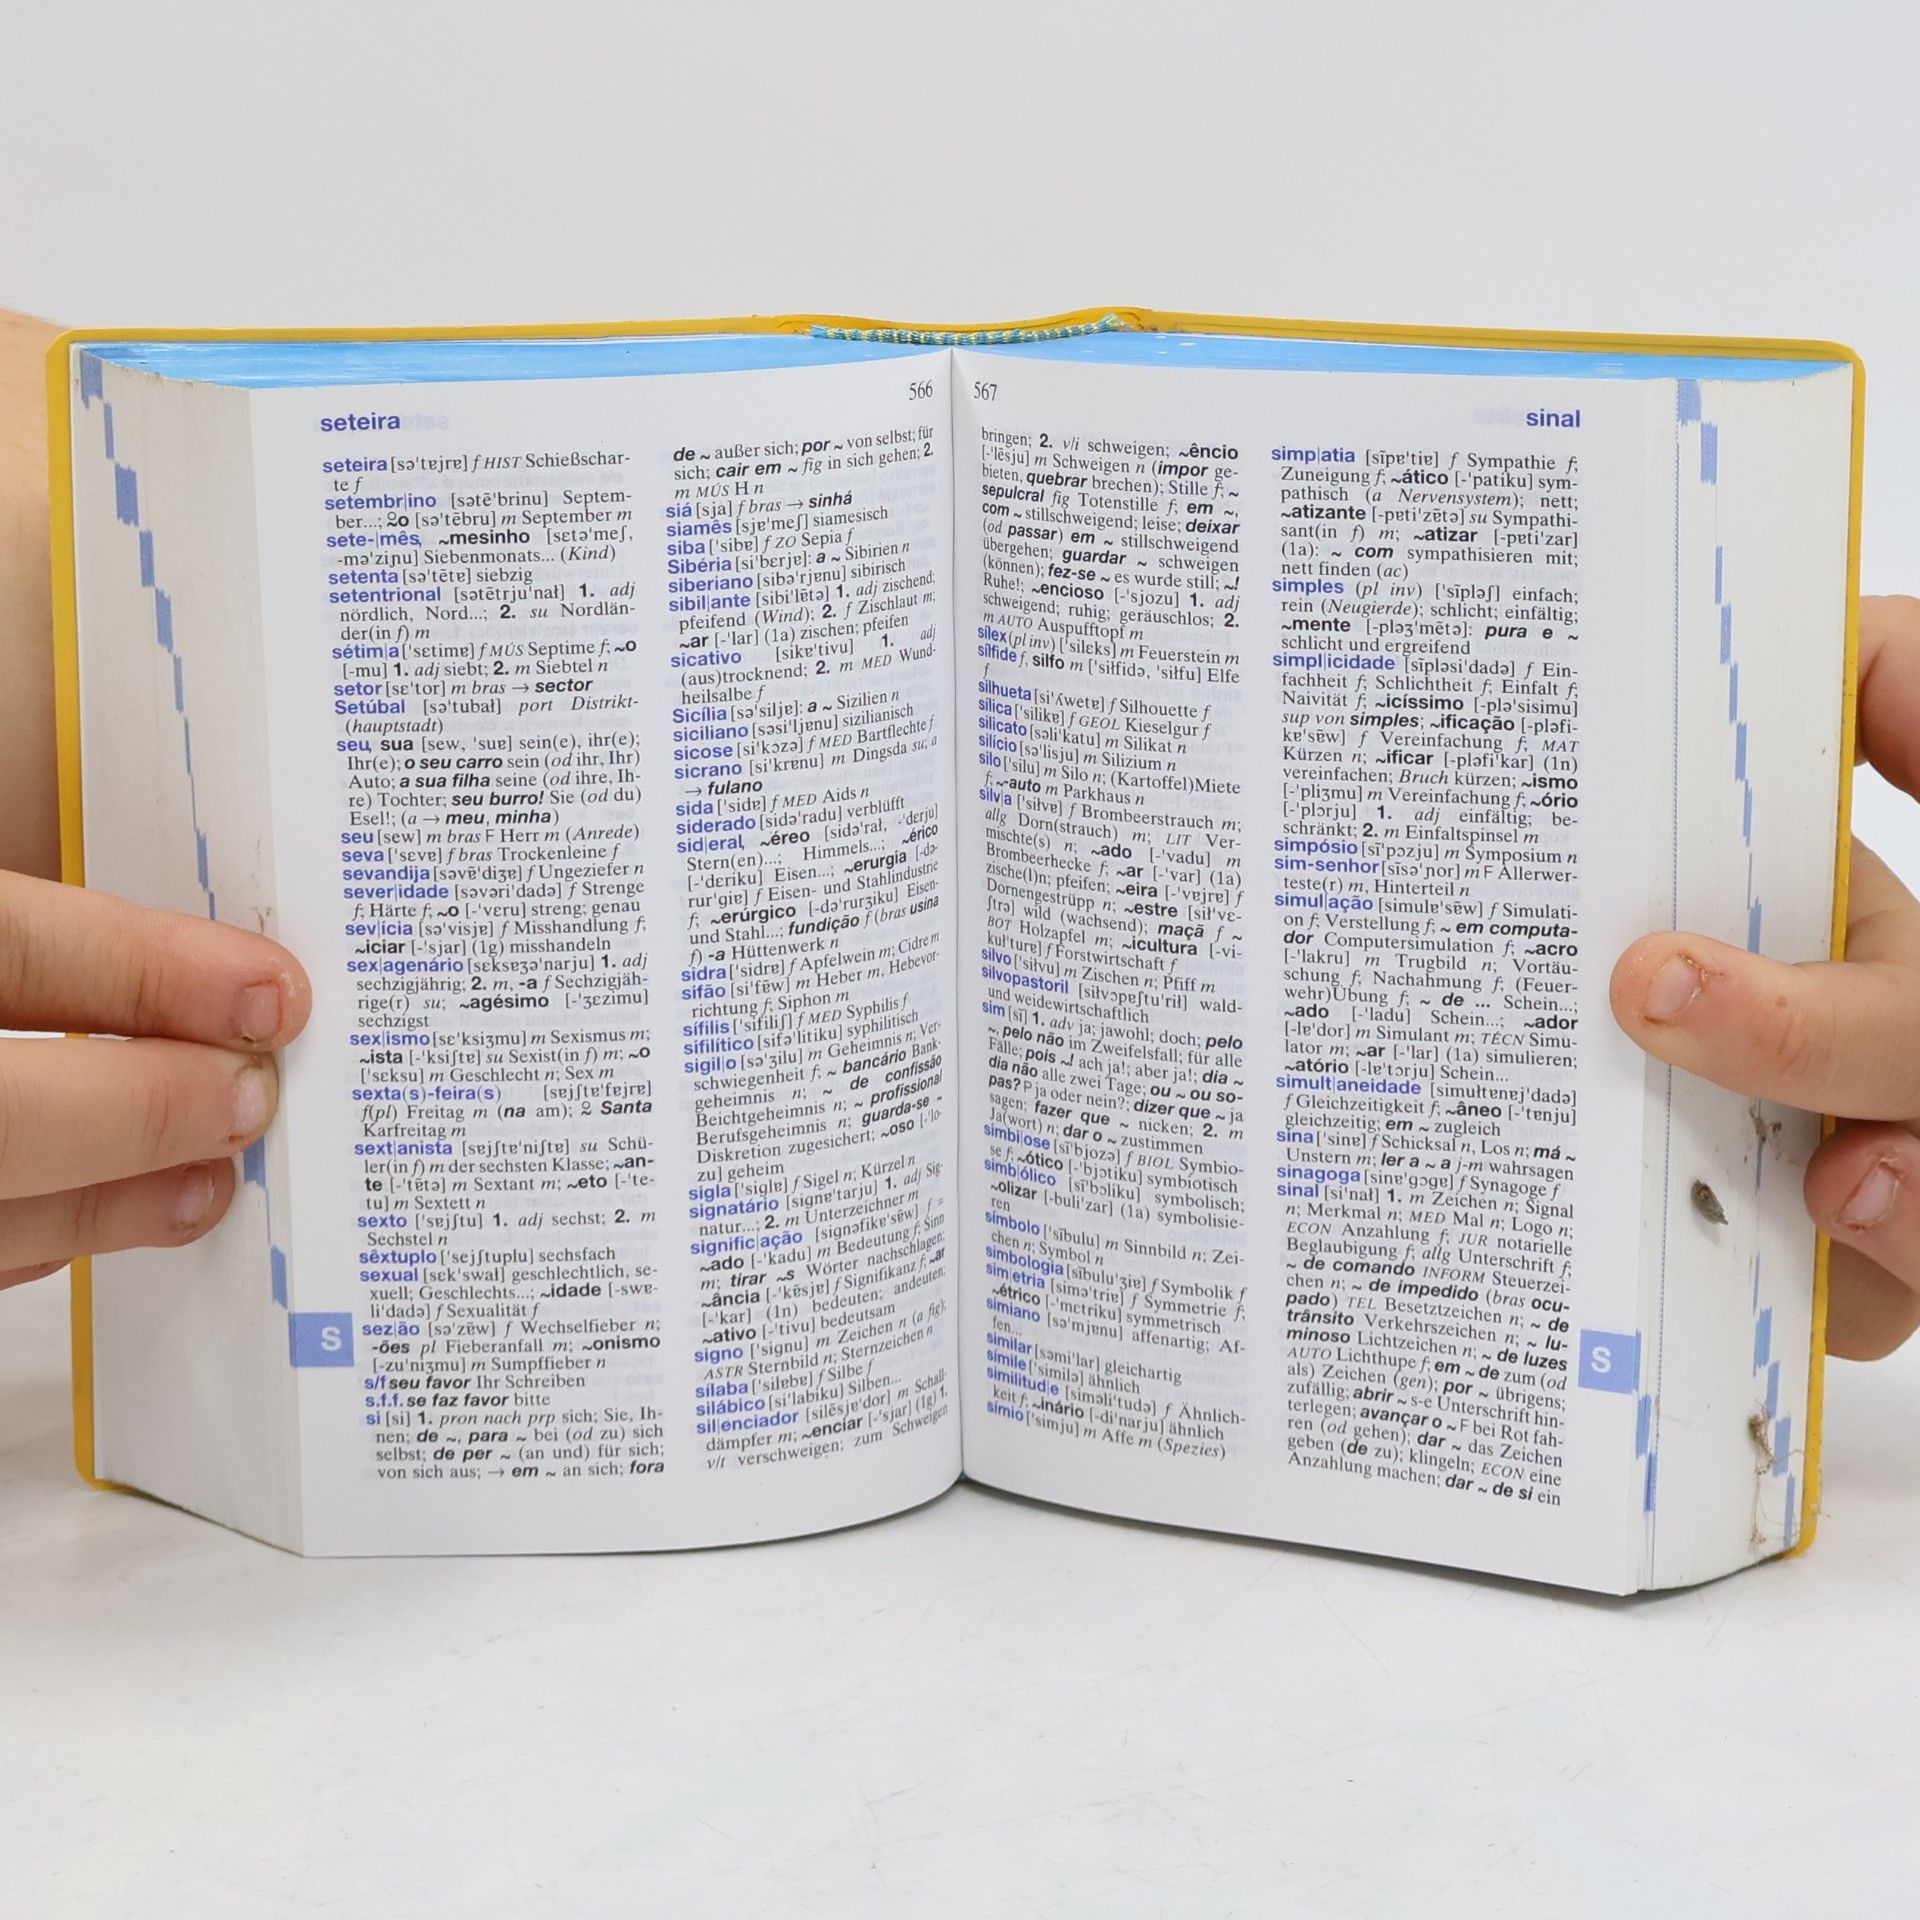 566
seteira
seteira [sə'tɐjrɐ] f HIST Schießschar-
te f
setembr|ino [sətẽ'brinu] Septem-
ber...; 2o [sə'tẽbru] m September m
sete-|mês, ~mesinho [sɛtə'meʃ,
-mə'ziɲu] Siebenmonats... (Kind)
setenta [sə'tẽtɐ] siebzig
setentrional [sətẽtrju'nał] 1. adj
nördlich, Nord...; 2. su Nordlän-
der(in f) m
sétim|a ['sɛtimɐ] f MÚS Septime f; ~o
[-mu] 1. adj siebt; 2. m Siebtel n
setor [sɛ'tor] m bras → sector
Setúbal [sə'tubał] port Distrikt-
(hauptstadt)
seu, sua [sew, 'suɐ] sein(e), ihr(e);
Ihr(e); o seu carro sein (od ihr, Ihr)
Auto; a sua filha seine (od ihre, Ih-
re) Tochter; seu burro! Sie (od du)
Esel!; (a → meu, minha)
seu [sew] m bras F Herr m (Anrede)
seva ['sɛvɐ] f bras Trockenleine f
sevandija [səvɐ̃'diʒɐ] f Ungeziefer n
sever|idade [səvəri'dadə] f Strenge
f; Härte f; ~o [-'vɛru] streng; genau
sev|ícia [sə'visjɐ] f Misshandlung f;
~iciar [-'sjar] (1g) misshandeln
sex|agenário [sɛksɐʒə'narju] 1. adj
sechzigjährig; 2. m, -a f Sechzigjäh-
rige(r) su; ~agésimo [-'ʒɛzimu]
sechzigst
sex|ismo [sɛ'ksiʒmu] m Sexismus m;
~ista [-'ksiʃtɐ] su Sexist(in f) m; ~o
['sɛksu] m Geschlecht n; Sex m
sexta(s)-feira(s) [sɐjʃtɐ'fɐjrɐ]
f(pl) Freitag m (na am); 2 Santa
Karfreitag m
sext|anista [sɐjʃtɐ'niʃtɐ] su Schü-
ler(in f) m der sechsten Klasse; ~an-
te [-'tɐ̃tə] m Sextant m; ~eto [-'te-
tu] m Sextett n
sexto ['sɐjʃtu] 1. adj sechst; 2. m
Sechstel n
sêxtuplo ['sejʃtuplu] sechsfach
sexual [sɛk'swał] geschlechtlich, se-
xuell; Geschlechts...; ~idade [-swɐ-
li'dadə] f Sexualität f
sez|ão [sə'zɐ̃w] f Wechselfieber n;
-ões pl Fieberanfall m; ~onismo
[-zu'niʒmu] m Sumpffieber n
s/f seu favor Ihr Schreiben
s.f.f. se faz favor bitte
si [si] 1. pron nach prp sich; Sie, Ih-
nen; de ~, para ~ bei (od zu) sich
selbst; de per ~ (an und) für sich;
von sich aus; → em ~ an sich; fora
S
de ~ außer sich; por ~ von selbst; für
sich; cair em ~ fig in sich gehen; 2.
m MÚS H n
siá [sja] f bras → sinhá
siamês [sjɐ'meʃ] siamesisch
siba ['sibɐ] f ZO Sepia f
Sibéria [si'bɛrjɐ]: a ~ Sibirien n
siberiano [sibə'rjɐnu] sibirisch
sibil|ante [sibi'lɐ̃tə] 1. adj zischend;
pfeifend (Wind); 2. f Zischlaut m;
~ar [-'lar] (1a) zischen; pfeifen
sicativo [sikɐ'tivu] 1. adj
(aus)trocknend; 2. m MED Wund-
heilsalbe f
Sicília [sə'siljɐ]: a ~ Sizilien n
siciliano [səsi'ljɐnu] sizilianisch
sicose [si'kɔzə] f MED Bartflechte f
sicrano [si'krɐnu] m Dingsda su; a
→ fulano
sida ['sidɐ] f MED Aids n
siderado [sidə'radu] verblüfft
sid|eral, ~éreo [sidə'rał, -'dɛrju]
Stern(en)...; Himmels...; ~érico
[-'dɛriku] Eisen...; ~erurgia [-də-
rur'giɐ] f Eisen- und Stahlindustrie
f; ~erúrgico [-də'rurʒiku] Eisen-
und Stahl...; fundição f (bras usina
f) -a Hüttenwerk n
sidra ['sidrɐ] f Apfelwein m; Cidre m
sifão [si'fɐ̃w] m Heber m, Hebevor-
richtung f; Siphon m
sífilis ['sifiliʃ] f MED Syphilis f
sifilítico [sifə'litiku] syphilitisch
sigil|o [sə'ʒilu] m Geheimnis n; Ver-
schwiegenheit f; ~ bancário Bank-
geheimnis n; ~ de confissão
Beichtgeheimnis n; ~ profissional
Berufsgeheimnis n; guarda-se ~
Diskretion zugesichert; ~oso [-'lo-
zu] geheim
sigla ['siglɐ] f Sigel n; Kürzel n
signatário [signɐ'tarju] 1. adj Sig-
natur...; 2. m Unterzeichner m
signific|ação [signəfikɐ'sɐ̃w] f =
~ado [-'kadu] m Bedeutung f; Sinn
m; tirar ~s Wörter nachschlagen;
~ância [-'kɐ̃sjɐ] f Signifikanz f; ~ar
[-'kar] (1n) bedeuten; andeuten;
~ativo [-'tivu] bedeutsam
signo ['signu] m Zeichen n (a fig);
ASTR Sternbild n; Sternzeichen n
sílaba ['silɐbɐ] f Silbe f
silábico [si'labiku] Silben...
sil|enciador [silẽsjɐ'dor] m Schall-
dämpfer m; ~enciar [-'sjar] (1g) 1.
v/t verschweigen; zum Schweigen
567
sinal
bringen; 2. v/i schweigen; ~êncio
[-'lẽsju] m Schweigen n (impor ge-
bieten, quebrar brechen); Stille f; ~
sepulcral fig Totenstille f; em ~,
com ~ stillschweigend; leise; deixar
(od passar) em ~ stillschweigend
übergehen; guardar ~ schweigen
(können); fez-se ~ es wurde still; ~!
Ruhe!; ~encioso [-'sjozu] 1. adj
schweigend; ruhig; geräuschlos; 2.
m AUTO Auspufftopf m
sílex (pl inv) ['silɛks] m Feuerstein m
sílfide f, silfo m ['siłfidə, 'siłfu] Elfe
f
silhueta [si'ʎwetɐ] f Silhouette f
sílica ['silikɐ] f GEOL Kieselgur f
silicato [səli'katu] m Silikat n
silício [sə'lisju] m Silizium n
silo ['silu] m Silo n; (Kartoffel)Miete
f; ~-auto m Parkhaus n
silv|a ['siłvɐ] f Brombeerstrauch m;
allg Dorn(strauch) m; LIT Ver-
mischte(s) n; ~ado [-'vadu] m
Brombeerhecke f; ~ar [-'var] (1a)
zische(l)n; pfeifen; ~eira [-'vɐjrɐ] f
Dornengestrüpp n; ~estre [sił'vɛ-
ʃtrə] wild (wachsend); maçã f ~
BOT Holzapfel m; ~icultura [-vi-
kuł'turɐ] f Forstwirtschaft f
silvo ['siłvu] m Zischen n; Pfiff m
silvopastoril [siłvɔpɐʃtu'rił] wald-
und weidewirtschaftlich
sim [sĩ] 1. adv ja; jawohl; doch; pelo
~, pelo não im Zweifelsfall; für alle
Fälle; pois ~! ach ja!; aber ja!; dia ~
dia não alle zwei Tage; ou ~ ou so-
pas? P ja oder nein?; dizer que ~ ja
sagen; fazer que ~ nicken; 2. m
Ja(wort) n; dar o ~ zustimmen
simbi|ose [sĩ'bjɔzə] f BIOL Symbio-
se f; ~ótico [-'bjɔtiku] symbiotisch
simb|ólico [sĩ'bɔliku] symbolisch;
~olizar [-buli'zar] (1a) symbolisie-
ren
símbolo ['sĩbulu] m Sinnbild n; Zei-
chen n; Symbol n
simbologia [sĩbulu'ʒiɐ] f Symbolik f
sim|etria [simə'triɐ] f Symmetrie f;
~étrico [-'mɛtriku] symmetrisch
simiano [sə'mjɐnu] affenartig; Af-
fen...
similar [səmi'lar] gleichartig
símile ['similə] ähnlich
similitud|e [siməli'tudə] f Ähnlich-
keit f; ~inário [-di'narju] ähnlich
símio ['simju] m Affe m (Spezies)
simp|atia [sĩpɐ'tiɐ] f Sympathie f;
Zuneigung f; ~ático [-'patiku] sym-
pathisch (a Nervensystem); nett;
~atizante [-pɐti'zɐ̃tə] su Sympathi-
sant(in f) m; ~atizar [-pɐti'zar]
(1a): ~ com sympathisieren mit;
nett finden (ac)
simples (pl inv) ['sĩpləʃ] einfach;
rein (Neugierde); schlicht; einfältig;
~mente [-pləʒ'mẽtə]: pura e ~
schlicht und ergreifend
simpl|icidade [sĩpləsi'dadə] f Ein-
fachheit f; Schlichtheit f; Einfalt f;
Naivität f; ~icíssimo [-plə'sisimu]
sup von simples; ~ificação [-pləfi-
kɐ'sɐ̃w] f Vereinfachung f; MAT
Kürzen n; ~ificar [-pləfi'kar] (1n)
vereinfachen; Bruch kürzen; ~ismo
[-'pliʒmu] m Vereinfachung f; ~ório
[-'plɔrju] 1. adj einfältig; be-
schränkt; 2. m Einfaltspinsel m
simpósio [sĩ'pɔzju] m Symposium n
sim-senhor [sĩsə'ɲor] m F Allerwer-
teste(r) m, Hinterteil n
simul|ação [simulɐ'sɐ̃w] f Simulati-
on f; Verstellung f; ~ em computa-
dor Computersimulation f; ~acro
[-'lakru] m Trugbild n; Vortäu-
schung f, Nachahmung f; (Feuer-
wehr)Übung f; ~ de ... Schein...;
~ado [-'ladu] Schein...; ~ador
[-lɐ'dor] m Simulant m; TÉCN Simu-
lator m; ~ar [-'lar] (1a) simulieren;
~atório [-lɐ'tɔrju] Schein...
simult|aneidade [simułtɐnɐj'dadə]
f Gleichzeitigkeit f; ~âneo [-'tɐnju]
gleichzeitig; em ~ zugleich
sina ['sinɐ] f Schicksal n, Los n; má ~
Unstern m; ler a ~ a j-m wahrsagen
sinagoga [sinɐ'gɔgɐ] f Synagoge f
sinal [si'nał] 1. m Zeichen n; Signal
n; Merkmal n; MED Mal n; Logo n;
ECON Anzahlung f; JUR notarielle
Beglaubigung f; allg Unterschrift f;
~ de comando INFORM Steuerzei-
chen n; ~ de impedido (bras ocu-
pado) TEL Besetztzeichen n; ~ de
trânsito Verkehrszeichen n; ~ lu-
minoso Lichtzeichen n; ~ de luzes
AUTO Lichthupe f; em ~ de zum (od
als) Zeichen (gen); por ~ übrigens;
zufällig; abrir ~ s-e Unterschrift hin-
terlegen; avançar o ~ F bei Rot fah-
ren (od gehen); dar ~ das Zeichen
geben (de zu); klingeln; ECON eine
Anzahlung machen; dar ~ de si ein
S